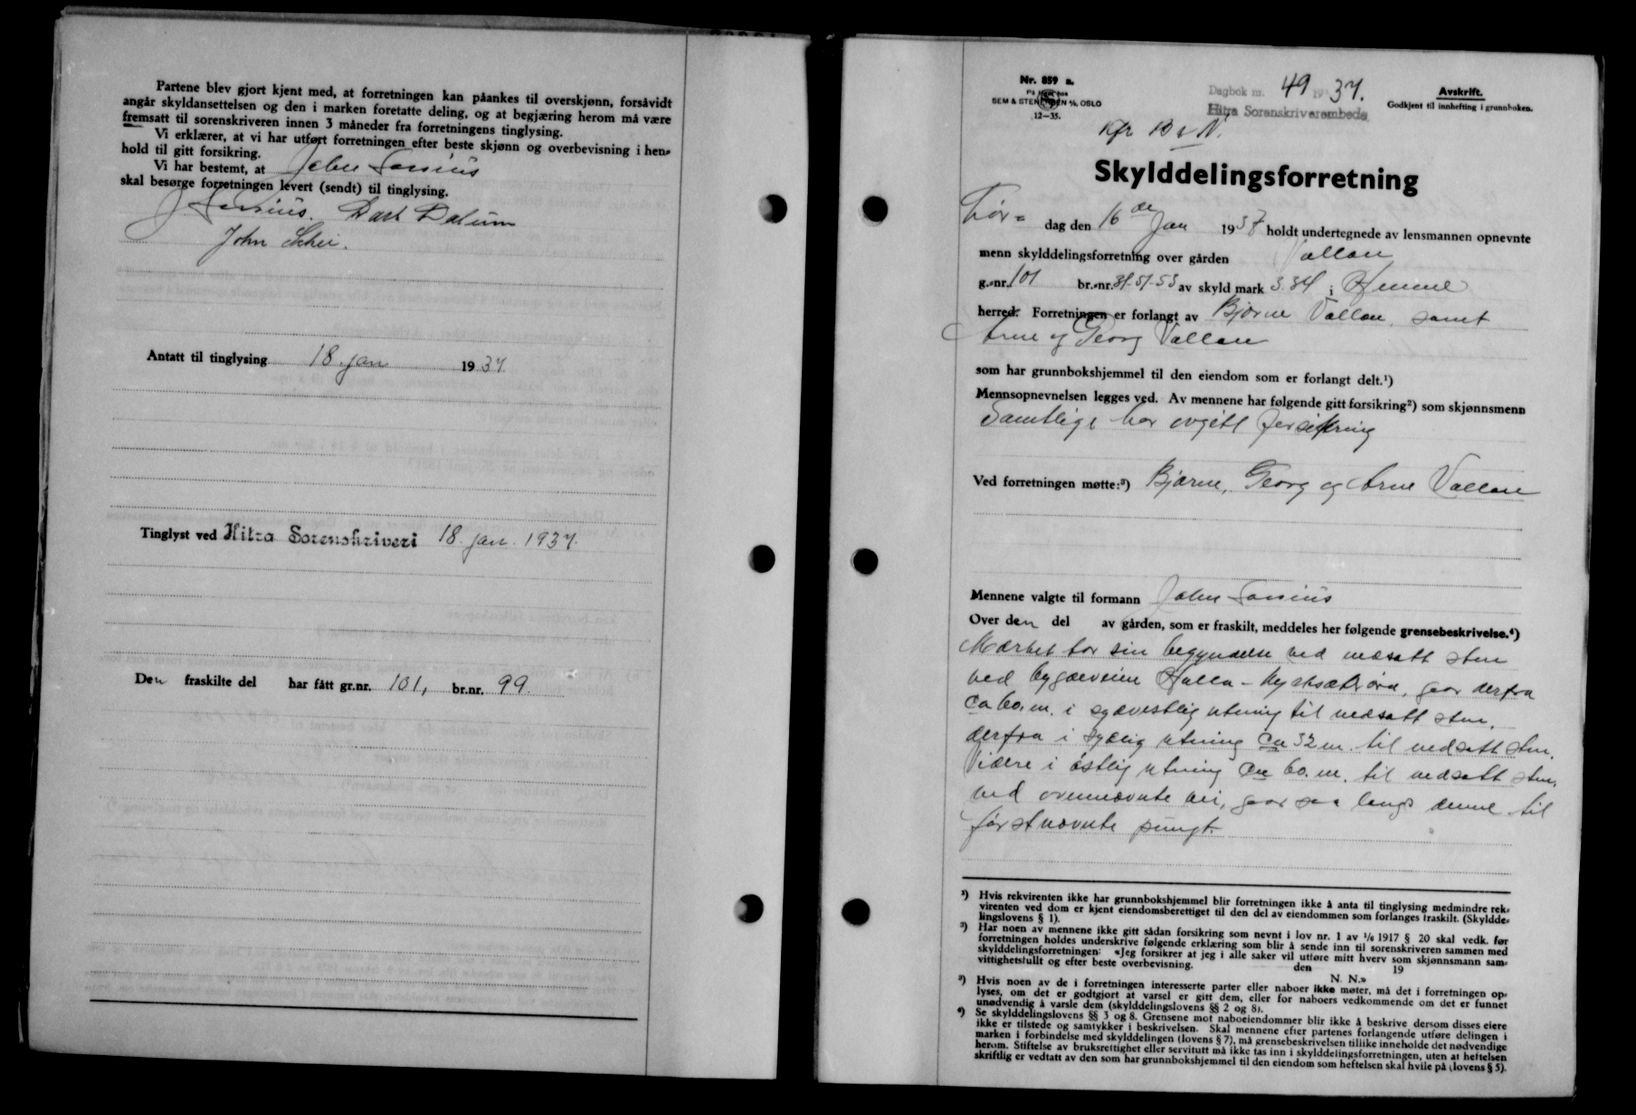 Partene blev gjort kjent med, at forretningen kan påankes til overskjønn, forsåvidt
angår skyldansettelsen og den i marken foretatte deling, og at begjæring herom må være
fremsatt til sorenskriveren innen 3 måneder fra forretningens tinglysing.
Vi erklærer, at vi har utført forretningen efter beste skjønn og overbevisning i hen-
hold til gitt forsikring.
Vi har bestemt, at John
skal besørge forretningen levert (sendt) til tinglysing.
Dalum
John
Antatt til tinglysing 18. jan 1937.
Tinglyst ved Hitra Sorenskriveri 18. jan. 1937.
Den fraskilte del har fått gr.nr. 101, br.nr. 99.
Nr. 859 a.
SEM & STENERSEN A/S, OSLO
12-35.
Dagbok nr. 49 1937.
Hitra Sorenskriverembede
Avskrift.
Godkjent til innhefting i grunnboken.
Skylddelingsforretning
Lør- dag den 16 de Jan 1937 holdt undertegnede av lensmannen opnevnte
menn skylddelingsforretning over gården Vallan
g.-nr. 101 br.-nr. av skyld mark 3.34 i Hemne
herred. Forretningen er forlangt av Bjarne Vallan, samt
Arne og Georg Vallan
som har grunnbokshjemmel til den eiendom som er forlangt delt.¹)
Mennsopnevnelsen legges ved. Av mennene har følgende gitt forsikring²) som skjønnsmenn
Samtlige har avgitt forsikring
Ved forretningen møtte:³) Bjarne, Georg og Arne Vallan
Mennene valgte til formann John
Over den del av gården, som er fraskilt, meddeles her følgende grensebeskrivelse.⁴)
Mærket tar sin begyndelse ved nedsatt sten
ved bygdeveiene Halla - gaar derfra
ca 60. m. i sydvestlig retning til nedsatt sten,
derfra i sydlig retning ca 32 m. til nedsatt sten.
Videre i østlig retning ca 60. m. til nedsatt sten,
ved ovennevnte vei, gaar saa langs denne til
førstnevnte pungt.
¹) Hvis rekvirenten ikke har grunnbokshjemmel blir forretningen ikke å anta til tinglysing medmindre rek-
virenten ved dom er kjent eiendomsberettiget til den del av eiendommen som forlanges fraskilt. (Skyldde-
lingslovens § 1).
²) Har noen av mennene ikke gitt sådan forsikring som nevnt i lov nr. 1 av 1/6 1917 § 20 skal vedk. før
forretningen holdes underskrive følgende erklæring som blir å sende inn til sorenskriveren sammen med
skylddelingsforretningen: «Jeg forsikrer at jeg i alle saker vil utføre mitt hverv som skjønnsmann sam-
vittighetsfullt og efter beste overbevisning. den 19
N. N.»
³) Hvis noen av de i forretningen interesserte parter eller naboer ikke møter, må det i forretningen op-
lyses, om det er godtgjort at varsel er gitt dem, eller for naboers vedkommende om det er funnet
unødvendig å varsle dem (skylddelingslovens §§ 2 og 8).
⁴) Se skylddelingslovens §§ 3 og 8. Grensene mot naboeiendommer blir ikke å beskrive dersom disses eiere
ikke er tilstede og samtykker i beskrivelsen. Skal mennene efter partenes forlangende utføre delingen i
marken i forbindelse med skylddelingen (lovens § 7), må grensebeskrivelsen tillike inneholde det nødvendige
herom. Stiftelse av bruksrettighet eller servitutt må ikke tas inn i skylddelingsforretningen, uten at heftelsen
skriftlig er vedtatt av den som har grunnbokshjemmel til den eiendom som heftelsen skal hvile på (lovens § 5).